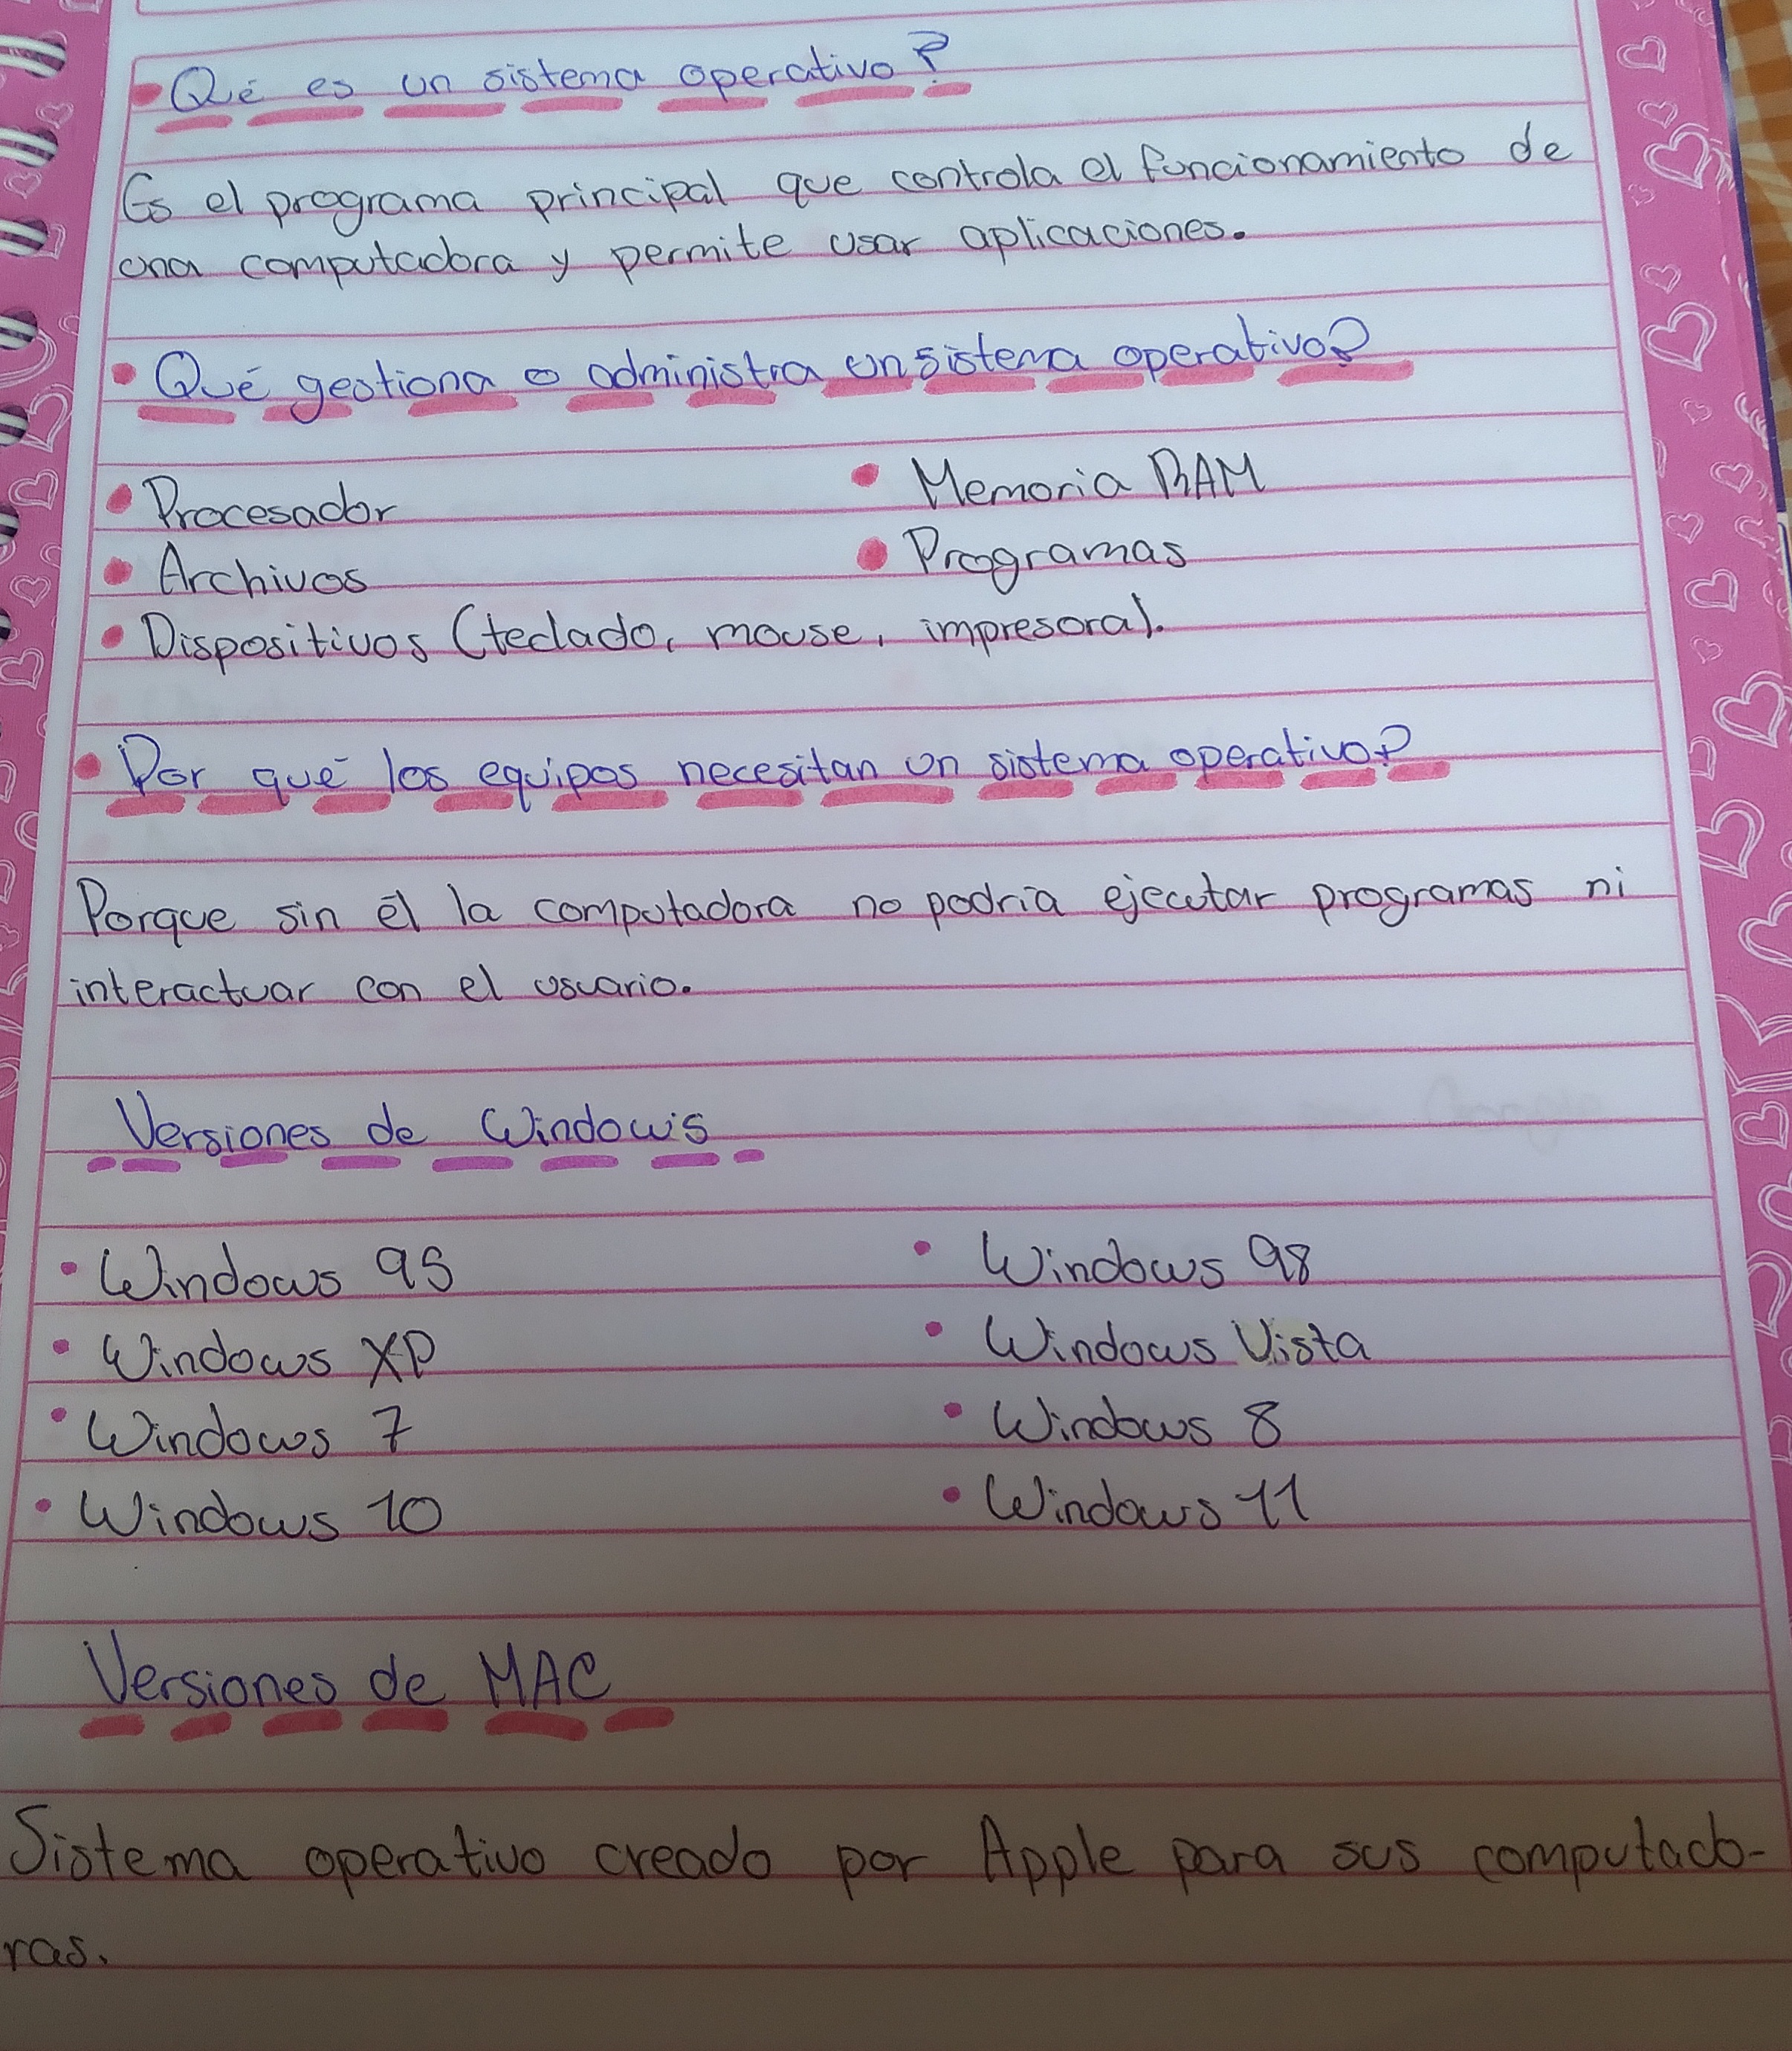 • Qué es un sistema operativo?
Es el programa principal que controla el funcionamiento de
una computadora y permite usar aplicaciones.
• Qué gestiona o administra un sistema operativo?
• Procesador • Memoria RAM
• Archivos • Programas
• Dispositivos (teclado, mouse, impresora).
• Por qué los equipos necesitan un sistema operativo?
Porque sin él la computadora no podría ejecutar programas ni
interactuar con el usuario.
Versiones de Windows
• Windows 95 • Windows 98
• Windows XP • Windows Vista
• Windows 7 • Windows 8
• Windows 10 • Windows 11
Versiones de MAC
Sistema operativo creado por Apple para sus computado-
ras.